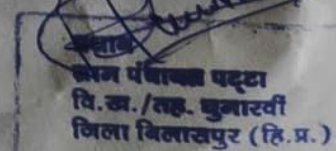 प्रधान
ग्राम पंचायत पट्टा
वि.ख./तह. घुमारवीं
जिला बिलासपुर (हि.प्र.)